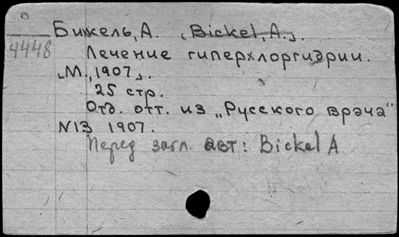 Бикель, А. [Bickel, A.].
4448
Лечение гиперхлоргидрии.
[М., 1907].
25 стр.
Отд. отт. из „Русского врача"
N13 1907.
Перед загл. авт: Bickel A